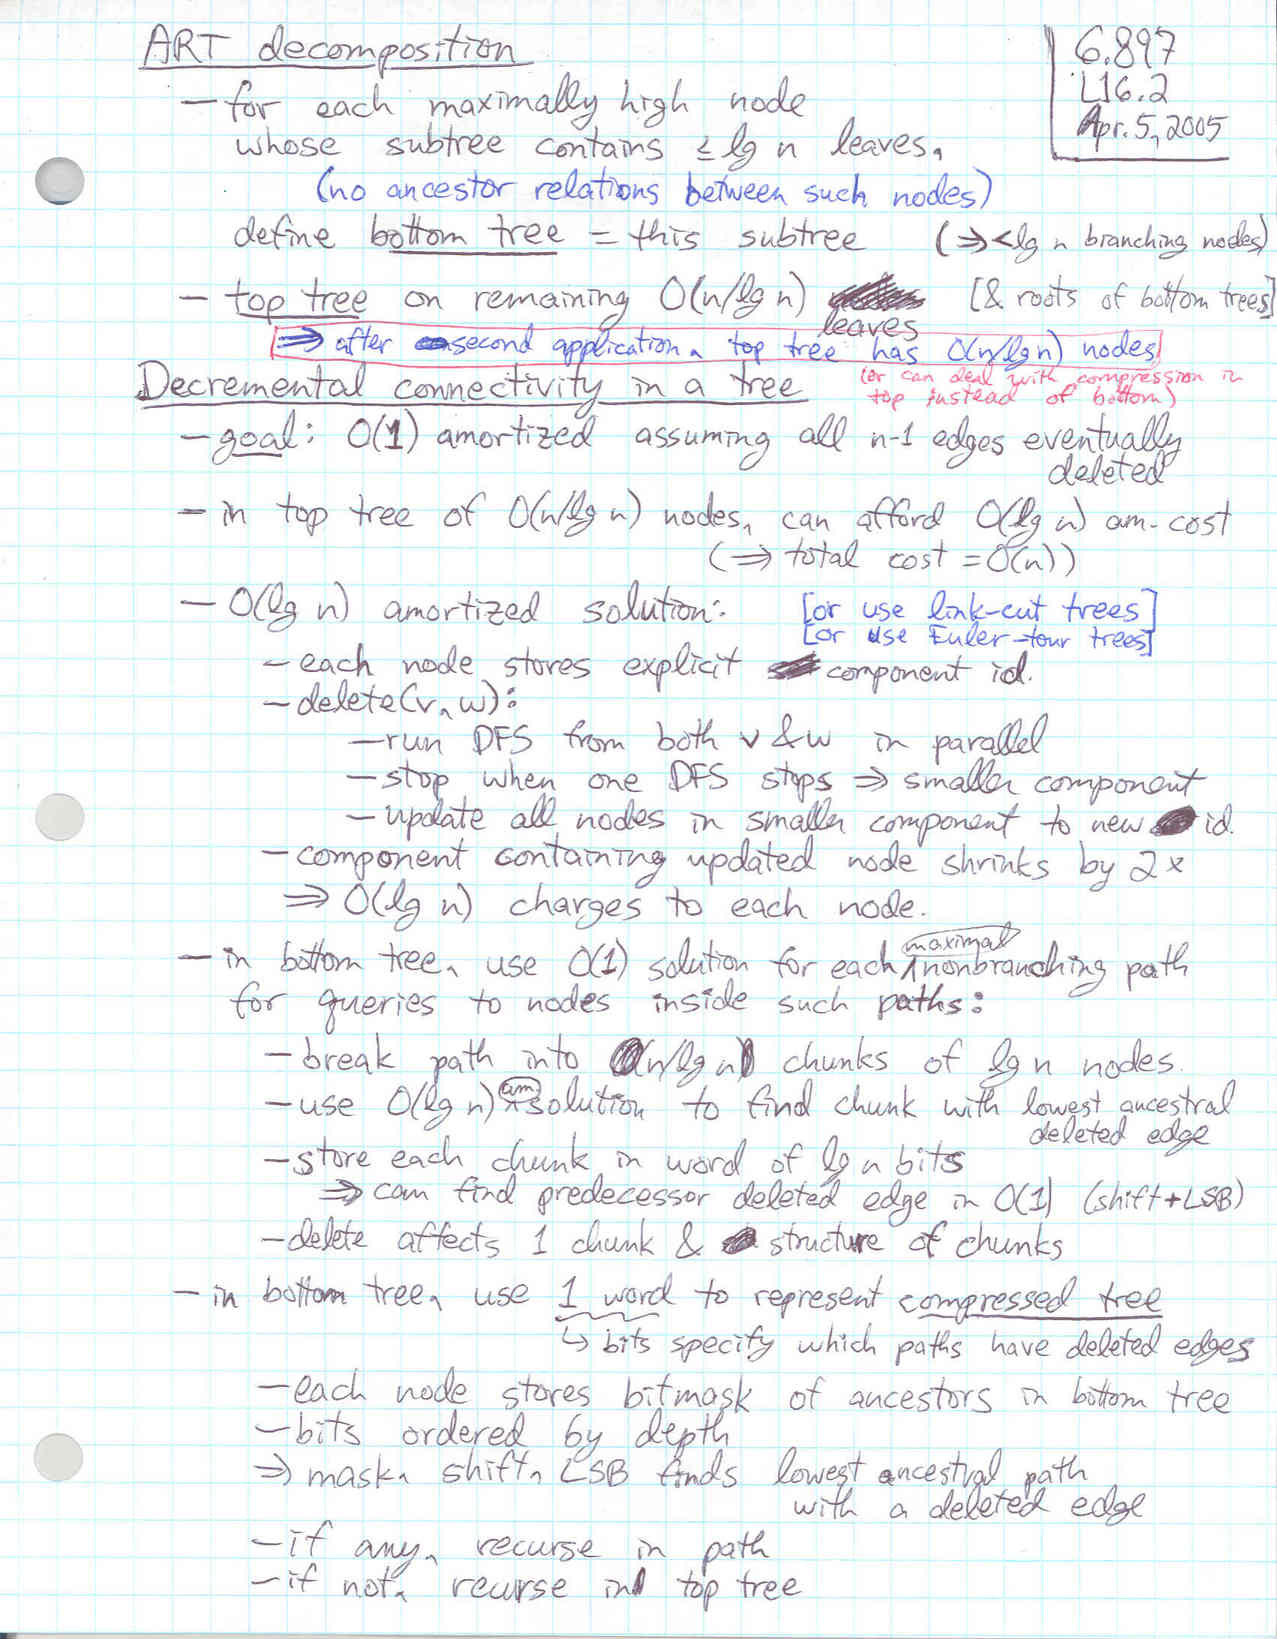 6.897
L16.2
Apr. 5, 2005
ART decomposition
- for each maximally high node
whose subtree contains ≤ lg n leaves,
(no ancestor relations between such nodes)
define bottom tree = this subtree (⇒ < lg n branching nodes)
- top tree on remaining O(n/lg n) leaves [& roots of bottom trees]
⇒ after second application, top tree has O(n/lg n) nodes
(or can deal with compression in
top instead of bottom)
Decremental connectivity in a tree
- goal: O(1) amortized assuming all n-1 edges eventually
deleted
- in top tree of O(n/lg n) nodes, can afford O(lg n) am. cost
(⇒ total cost = O(n))
- O(lg n) amortized solution: [or use link-cut trees]
[or use Euler-tour trees]
- each node stores explicit component id.
- delete(v,w):
- run DFS from both v & w in parallel
- stop when one DFS stops ⇒ smaller component
- update all nodes in smaller component to new id.
- component containing updated node shrinks by 2x
⇒ O(lg n) charges to each node.
- in bottom tree, use O(1) solution for each maximal nonbranching path
for queries to nodes inside such paths:
- break path into n/lg n chunks of lg n nodes.
- use O(lg n) am. solution to find chunk with lowest ancestral
deleted edge
- store each chunk in word of lg n bits
⇒ can find predecessor deleted edge in O(1) (shift+LSB)
- delete affects 1 chunk & structure of chunks
- in bottom tree, use 1 word to represent compressed tree
↳ bits specify which paths have deleted edges
- each node stores bitmask of ancestors in bottom tree
- bits ordered by depth
⇒ mask, shift, LSB finds lowest ancestral path
with a deleted edge
- if any, recurse in path
- if not, recurse in top tree